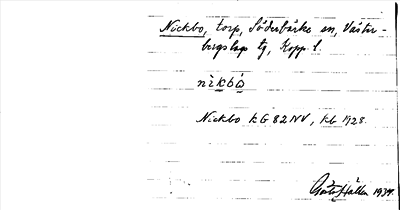 Nickbo, torp, Söderbärke sn, Väster-
bergslags tg, Kopp. l.
nìkbò
Nickbo kG 82 NV, kb 1728.
Gösta Hállen 1934.